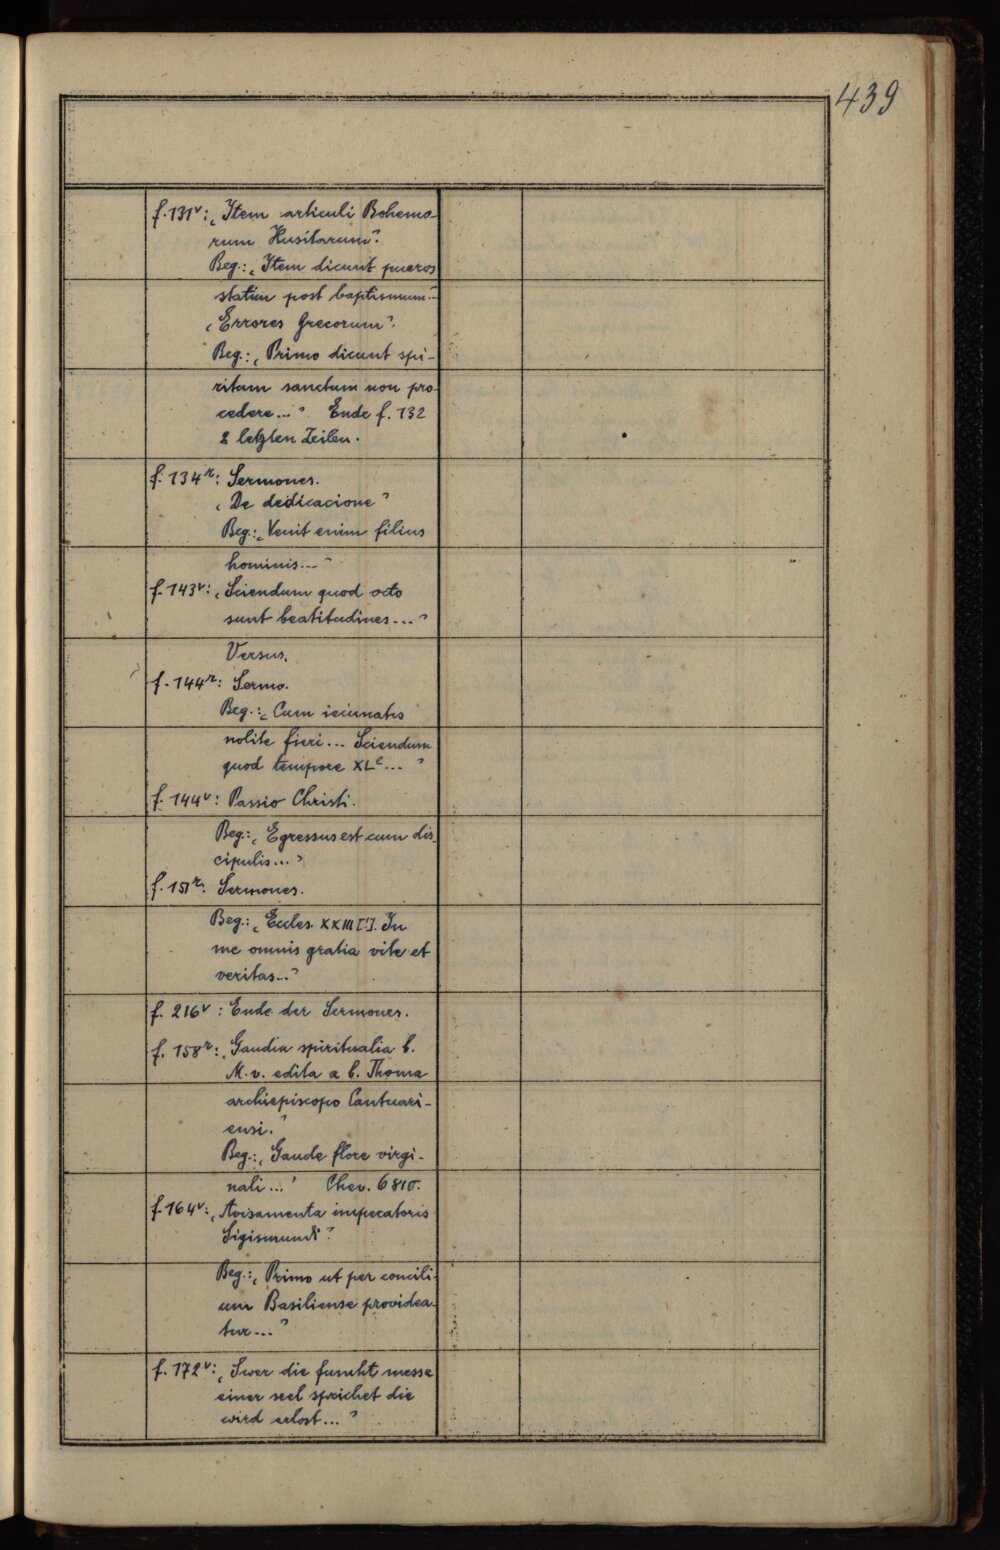 439
f. 131v: „Item articuli Bohemo-
rum Husitarum“.
Beg.: „Item dicunt pueros
statim post baptismum“
„Errores Grecorum“.
Beg.: „Primo dicunt spi-
ritum sanctum non pro-
cedere...“ Ende f. 132
2 letzten Zeilen.
f. 134r: Sermones.
„De dedicacione“
Beg.: „Venit enim filius
hominis...“
f. 143v: „Sciendum quod octo
sunt beatitudines...“
Versus.
f. 144r: Sermo.
Beg.: „Cum ieiunatis
nolite fieri... Sciendum
quod tempore XLe...“
f. 144v: Passio Christi.
Beg.: „Egressus est cum dis-
cipulis...“
f. 151r: Sermones.
Beg.: „Eccles. XXIII [!]. In
me omnis gratia vite et
veritas..“
f. 216v: Ende der Sermones.
f. 158r: „Gaudia spiritualia b.
M. v. edita a b. Thoma
archiepiscopo Cantuari-
ensi.“
Beg.: „Gaude flore virgi-
nali...“ Chev. 6810.
f. 164v: „Avisamenta imperatoris
Sigismundi“.
Beg.: „Primo ut per concili-
um Basiliense providea-
tur...“
f. 172v: „Swer die funkt messe
einer seel sprichet die
wird erlost...“